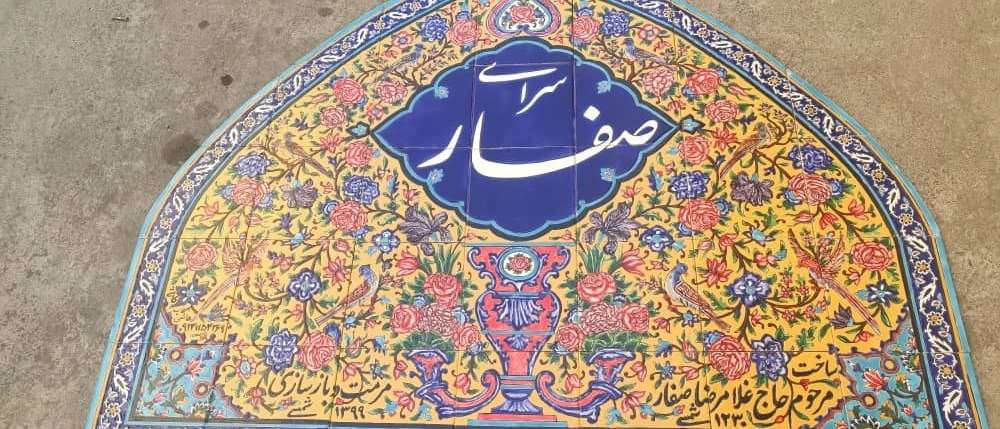 سرای
صفار
ساخت
مرحوم حاج غلامرضا صفار
۱۲۳۰ شمسی
مرمت و بازسازی
۱۳۹۹ شمسی